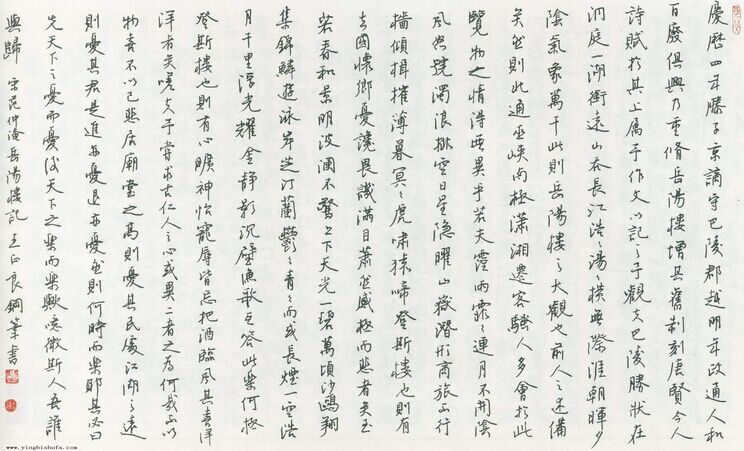 慶曆四年滕子京謫守巴陵郡越明年政通人和
百廢俱興乃重脩岳陽樓增其舊制刻唐賢今人
詩賦於其上屬予作文以記之予觀夫巴陵勝狀在
洞庭一湖銜遠山吞長江浩々湯々橫無際涯朝暉夕
陰氣象萬千此則岳陽樓之大觀也前人之述備
矣然則北通巫峽南極瀟湘遷客騷人多會於此
覽物之情得無異乎若夫霪雨霏々連月不開陰
風怒號濁浪排空日星隱曜山嶽潛形商旅不行
檣傾楫摧薄暮冥々虎嘯猿啼登斯樓也則有
去國懷鄉憂讒畏譏滿目蕭然感極而悲者矣至
若春和景明波瀾不驚上下天光一碧萬頃沙鷗翔
集錦鱗游泳岸芷汀蘭鬱々青々而或長煙一空皓
月千里浮光耀金靜影沉璧漁歌互答此樂何極
登斯樓也則有心曠神怡寵辱皆忘把酒臨風其喜洋
洋者矣嗟夫予嘗求古仁人之心或異二者之為何哉不以
物喜不以己悲居廟堂之高則憂其民處江湖之遠
則憂其君是進亦憂退亦憂然則何時而樂耶其必曰
先天下之憂而憂後天下之樂而樂歟噫微斯人吾誰
與歸 宋范仲淹岳陽樓記 王正良鋼筆書
www.yingbishufa.com